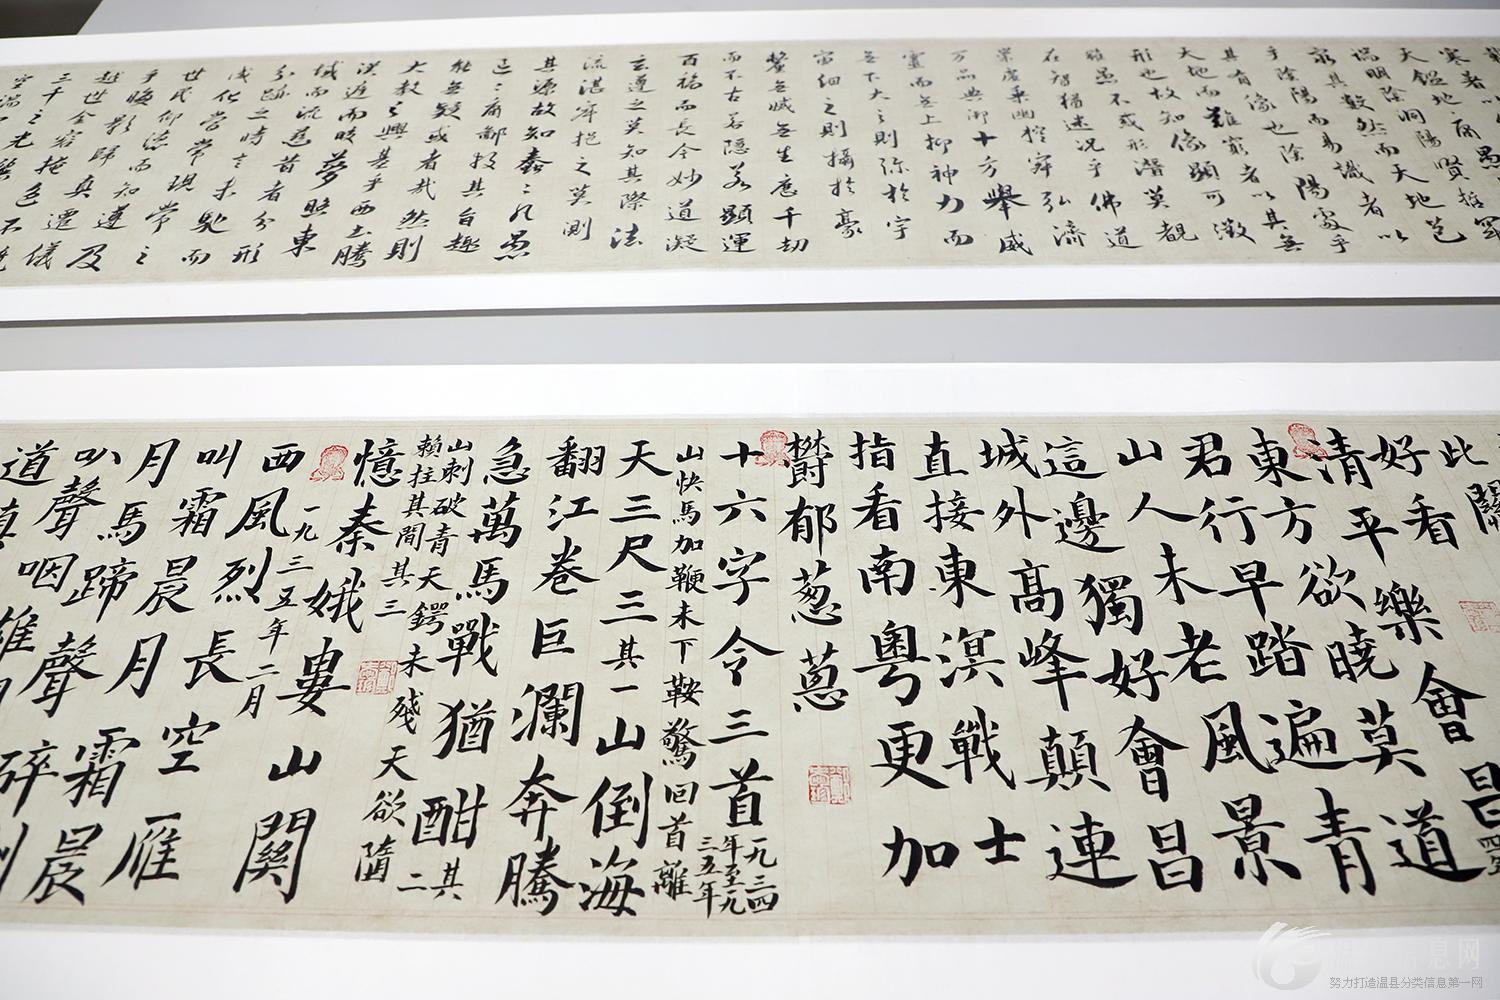 寒暑以
天鑑地庸愚
端明陰洞陽賢哲罕
窮其數然而天地苞
乎陰陽而易識者以
其有像也陰陽處乎
天地而難窮者以其無
形也故知像顯可徵
雖愚不惑形潛莫覩
在智猶迷況乎佛道
崇虛乘幽控寂弘濟
万品典御十方舉威
靈而無上抑神力而
無下大之則弥於宇
宙細之則攝於豪
釐無滅無生歷千劫
而不古若隱若顯運
百福而長今妙道凝
玄遵之莫知其際法
流湛寂挹之莫測
其源故知蠢〻凡愚
區〻庸鄙投其旨趣
能無疑或者哉然則
大教之興基乎西土騰
漢庭而皎夢照東
域而流慈昔者分形
分跡之時言未馳而
成化當常現常之
世民仰德而知遵及
乎晦影歸真遷儀
越世金容掩色不鏡
三千之光
此關
好看
清平樂會昌
東方欲曉莫道
君行早踏遍青
山人未老風景
這邊獨好會昌
城外高峰顛連
直接東溟戰士
指看南粵更加
鬱郁葱葱
十六字令三首 一九三四年至一九三五年
山快馬加鞭未下鞍驚回首離
天三尺三其一山倒海
翻江卷巨瀾奔騰
急萬馬戰猶酣其二
山刺破青天鍔未殘天欲墮
賴拄其間其三
憶秦娥婁山關
一九三五年二月
西風烈長空雁
叫霜晨月霜晨
月馬蹄聲碎喇
叭聲咽雄關
道真
努力打造温县分类信息第一网